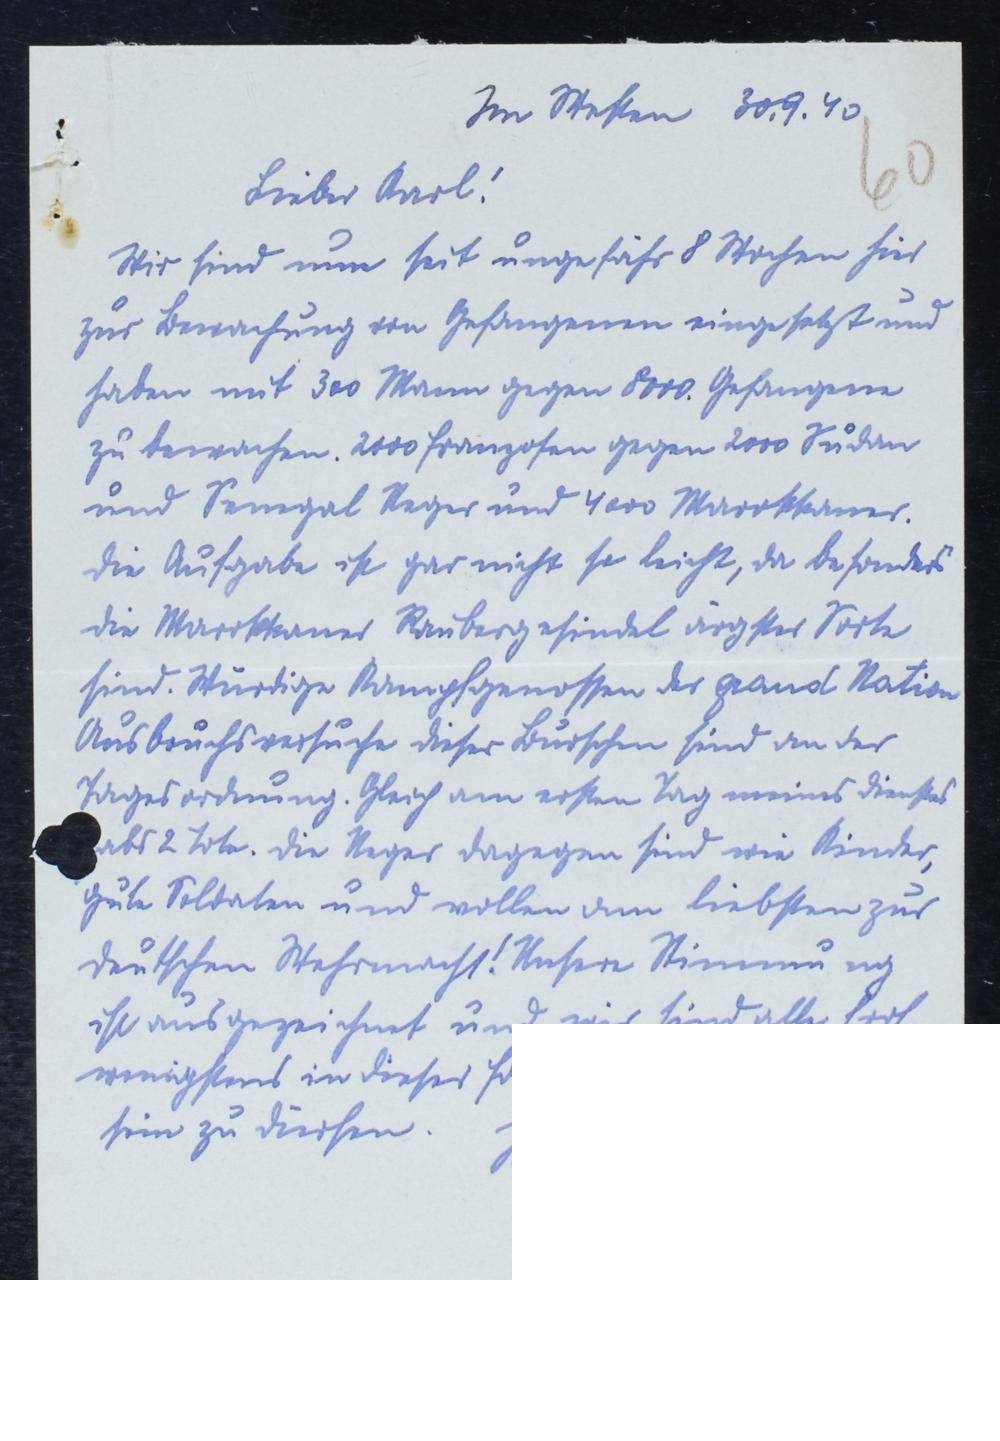 Im Westen 30.9.40
60
Lieber Karl!
Wir sind nun seit ungefähr 8 Wochen hier
zur Bewachung von Gefangenen eingesetzt und
haben mit 300 Mann gegen 8000. Gefangene
zu bewachen. 2000 Franzosen gegen 2000 Sudan
und Senegal Neger und 4000 Marokkaner.
Die Aufgabe ist gar nicht so leicht, da besonders
die Marokkaner Raubergesindel ärgster Sorte
sind. Würdige Kampfgenossen der grand Nation
Ausbruchsversuche dieser Burschen sind an der
Tagesordnung. Gleich am ersten Tag meines Dienstes
2 Tote. Die Neger dagegen sind wie Kinder,
gute Soldaten und wollen am liebsten zur
deutschen Wehrmacht! Unsere Stimmung
ist ausgezeichnet und wir sind alle froh
wenigstens in dieser
sein zu dürfen.